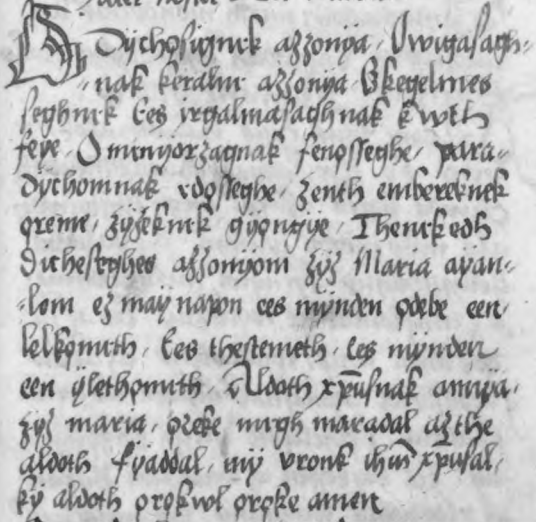 O Dychosugnek azzonya, Vwigasagh-
nak keralne azzonya O kegelmes
seghnek Ees irgalmasaghnak kwth
feye, O minyorzagnak fenosseghe, para-
dychomnak edosseghe, zenth embereknek
oreme, zyzeknek gyongye, Thenekedh
dichesseghes azzonyom zyz Maria ayan-
lom ez may napon ees mynden odebe een
lelkomuth, Ees thestemeth, ees mynden
een ylethomuth, Aldoth xpusnak annya,
zyz maria, oroke megh maradal azthe
aldoth fyaddal, my vronk ihus xpusal,
ky aldoth orokwol oroke amen